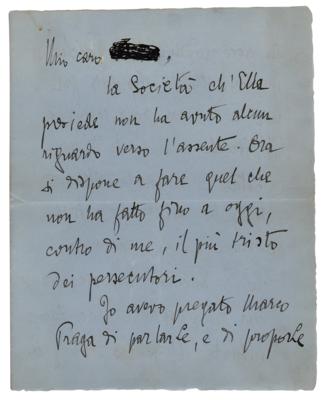 Mio caro ,
la Società ch'Ella
presiede non ha avuto alcun
riguardo verso l'assente. Ora
si dispone a fare quel che
non ha fatto fino a oggi,
contro di me, il più tristo
dei persecutori.
Io avevo pregato Marco
Praga di parlarle, e di proporle